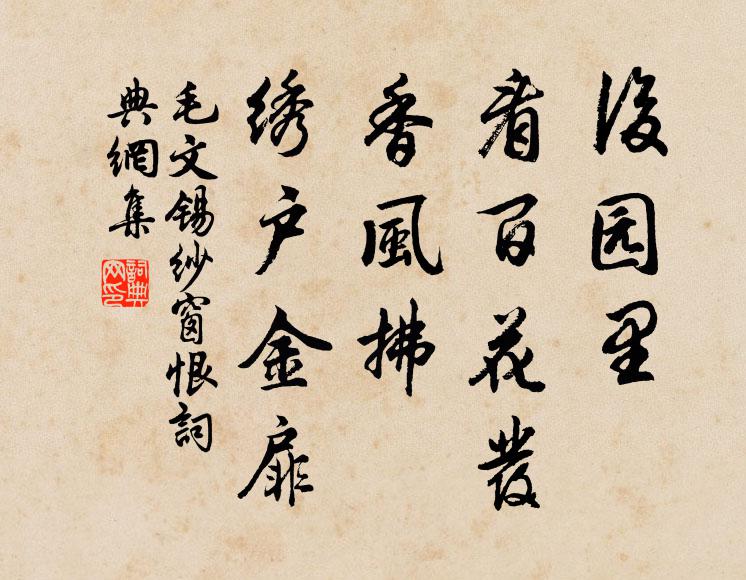 後园里
看百花發
香風拂
绣户金扉
毛文锡纱窗恨詞
典網集
詞典
网印